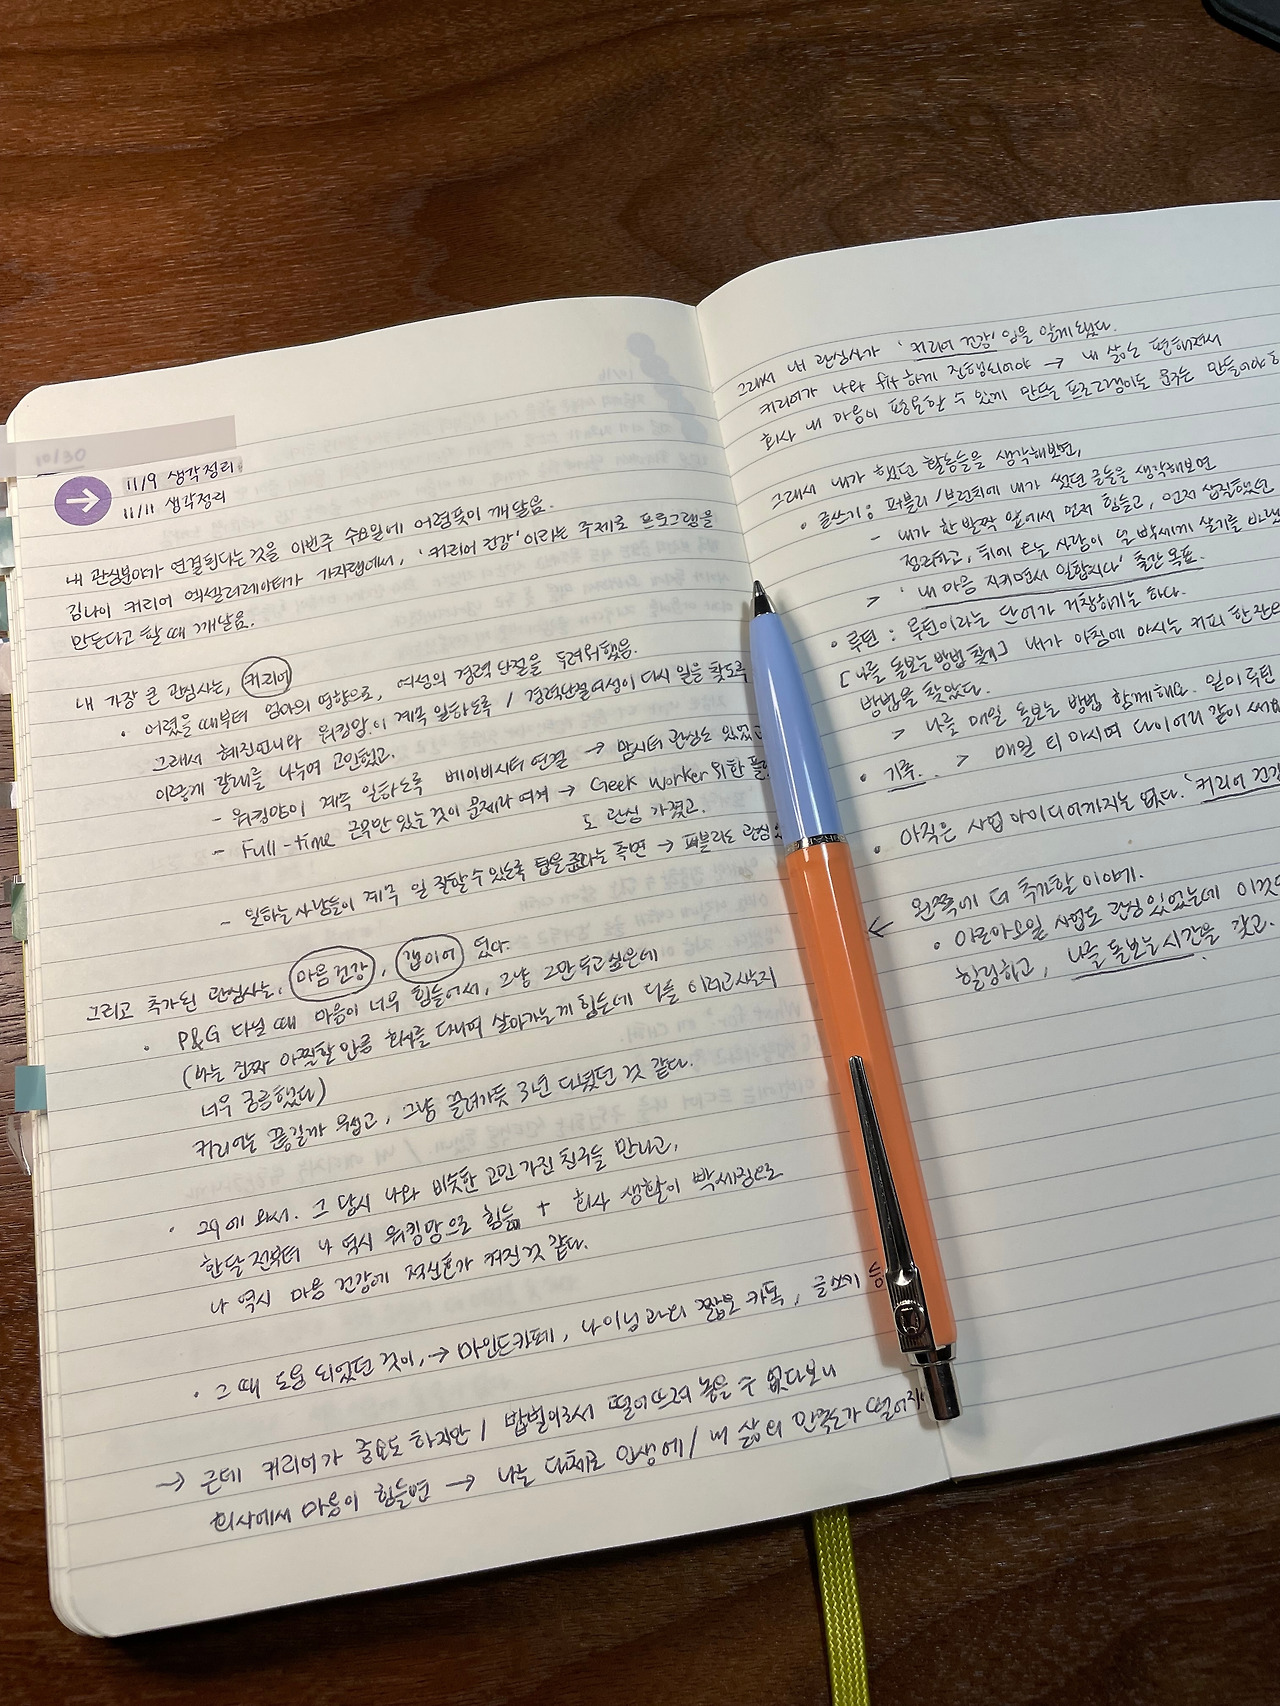 11/9 생각정리
11/11 생각정리
내 관심분야가 연결된다는 것을 이번주 수요일에 어렴풋이 깨달음.
김나이 커리어 엑셀러레이터가 가지랩에서, '커리어 건강'이라는 주제로 프로그램을
만든다고 할 때 깨달음.
내 가장 큰 관심사는, 커리어
• 어렸을 때부터 엄마의 영향으로, 여성의 경력 단절을 두려워했음.
그래서 혜진언니와 워킹맘이 계속 일하도록 / 경력단절여성이 다시 일을 찾도록
이렇게 갈래를 나누며 고민했고.
- 워킹맘이 계속 일하도록 베이비시터 연결 → 맘시터 관심도 있었고
- Full-time 근무만 있는 것이 문제라 여겨 → Geek Worker 위한
도 관심 가졌고.
- 일하는 사람들이 계속 일 잘할 수 있도록 팁을 준다는 측면 → 퍼블리도 관심
그리고 추가된 관심사는, 마음 건강, 갭이어 였다.
• P&G 다닐 때 마음이 너무 힘들어서, 그냥 그만두고 싶은데
(나는 진짜 아찔할 만큼 회사를 다니며 살아가는게 힘든데 다들 이러고 사는지
너무 궁금했다)
커리어는 끊길까 무섭고, 그냥 끌려가듯 3년 다녔던 것 같다.
• 29에 와서. 그 당시 나와 비슷한 고민 가진 친구들 만나고,
한달 전부터 나 역시 워킹맘으로 힘듦 + 회사 생활이 빡세짐으로
나 역시 마음 건강에 적신호가 켜진 것 같다.
• 그 때 도움 되었던 것이, → 마인드카페, 나이님과의 짧은 카톡, 글쓰기 등
→ 근데 커리어가 중요도 하지만 / 밥벌이로서 떨어뜨려 놓을 수 없다보니
회사에서 마음이 힘들면 → 나는 대체로 인생에 / 내 삶의 만족도가 떨어지
그래서 내 관심사가 '커리어 건강' 임을 알게 됐다.
커리어가 나와 fit하게 진행되어야 → 내 삶도 편해져서
회사 내 마음이 평온할 수 있게 만드는 프로그램이든 뭐든 만들어야
그래서 내가 했던 활동들을 생각해보면,
• 글쓰기 : 퍼블리/브런치에 내가 썼던 글들을 생각해보면
- 내가 한 발짝 앞에서 먼저 힘들고, 먼저 삽질했던
정리하고, 뒤에 오는 사람이 덜 빡세게 살기를 바랬
> '내 마음 지키면서 일합시다' 출간 목표.
• 루틴 : 루틴이라는 단어가 거창하기는 하다.
[나를 돌보는 방법 찾기] 내가 아침에 마시는 커피 한 잔
방법을 찾았다.
> 나를 매일 돌보는 방법 함께해요. 일이 루틴
• 기록.. > 매일 티 마시며 다이어리 같이 써
• 아직은 사업 아이디어까지는 없다. '커리어 건강
← 왼쪽에 더 추가할 이야기.
• 아로마오일 사업도 관심 있었는데 이것
힐링하고, 나를 돌보는 시간을 갖고.